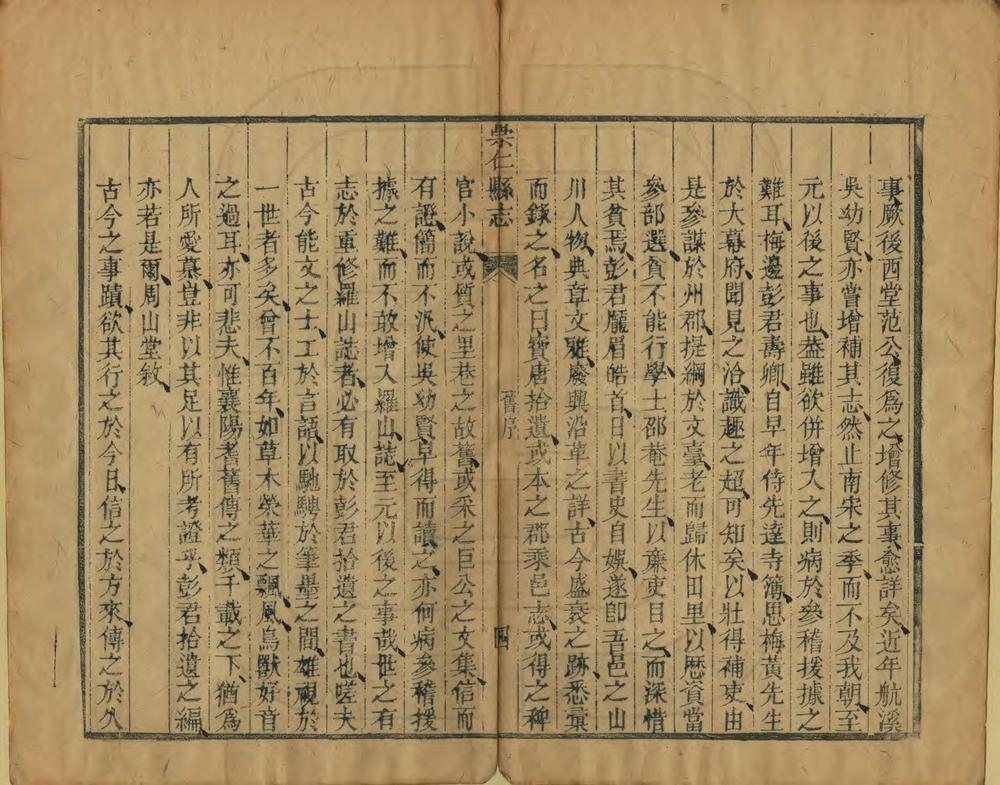 事厥後西堂范公復為之增修其事愈詳矣近年航溪
吳幼賢亦嘗增補其志然止南宋之季而不及我朝至
元以後之事也葢雖欲併增入之則病於參稽援據之
難耳梅邊彭君壽卿自早年侍先達寺簿思梅黃先生
於大幕府聞見之洽識趣之超可知矣以壯得補吏由
是參謀於州郡提綱於文臺老而歸休田里以歷資當
參部選貧不能行學士邵菴先生以廉吏目之而深惜
其貧焉彭君龐眉皓首日以書史自娛遂卽吾邑之山
川人物典章文雅廢興沿革之詳古今盛衰之跡悉彙
而錄之名之曰寶唐拾遺或本之郡乘邑志或得之稗
崇仁縣志
舊序
四
官小說或質之里巷之故舊或采之巨公之文集信而
有證簡而不汎使吳幼賢早得而讀之亦何病參稽援
據之難而不敢增入羅山誌至元以後之事哉世之有
志於重修羅山誌者必有取於彭君拾遺之書也嗟夫
古今能文之士工於言語以馳騁於筆墨之間雄視於
一世者多矣曾不百年如草木榮華之飄風鳥獸好音
之過耳亦可悲夫惟襄陽耆舊傳之類千載之下猶為
人所愛慕豈非以其足以有所考證乎彭君拾遺之編
亦若是爾周山堂敘
古今之事蹟欲其行之於今日信之於方來傳之於久